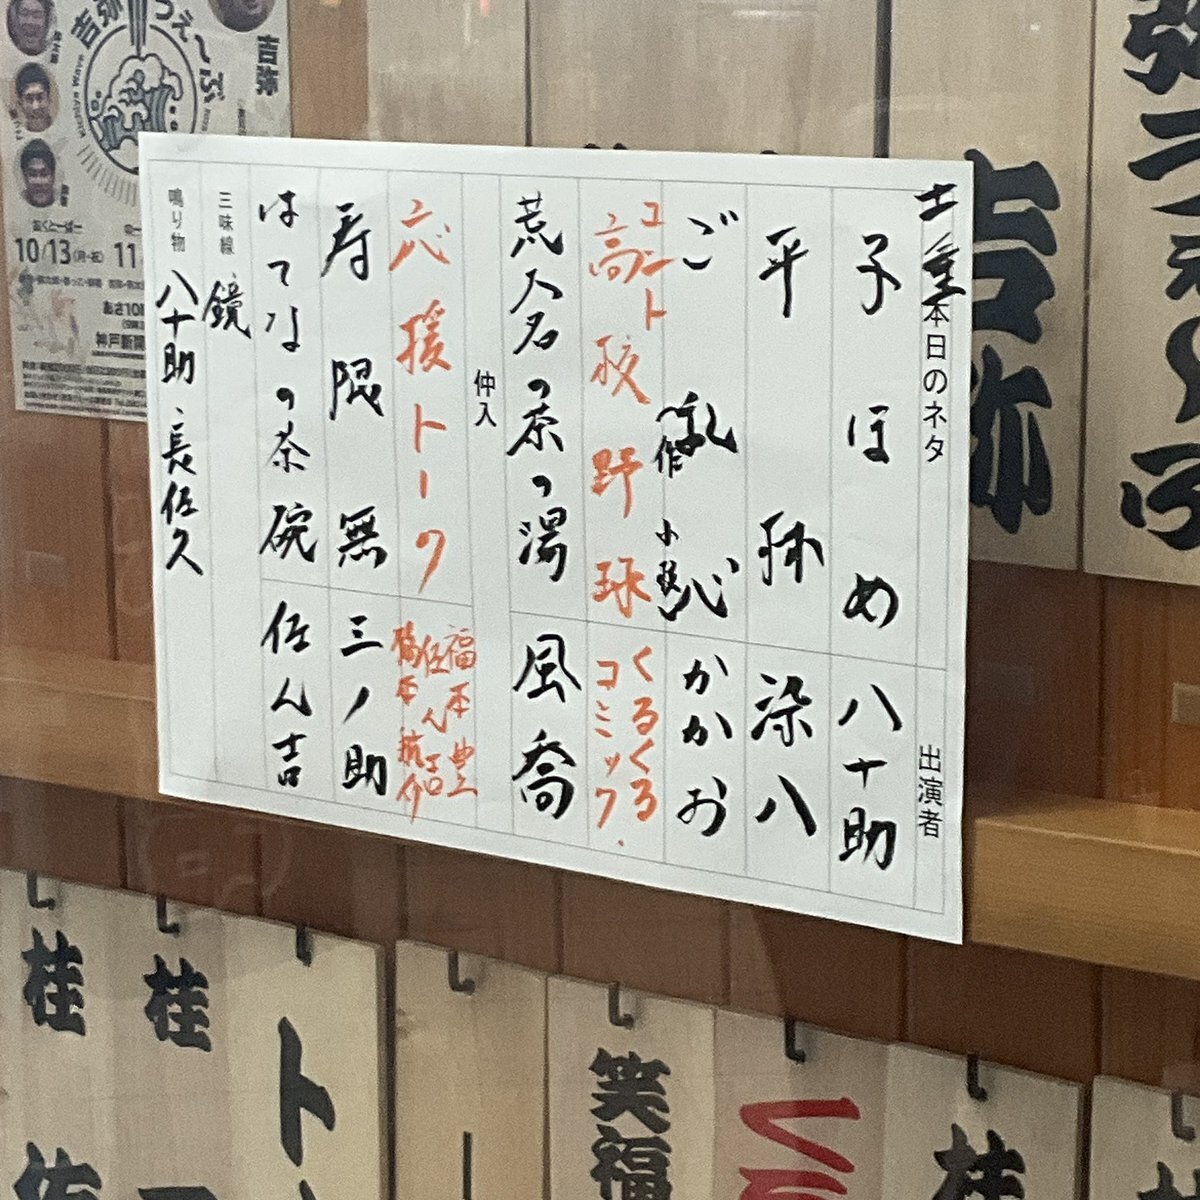 本日のネタ
出演者
子ほめ 八十助
平林 染八
ご乱心 かかお
コント
高校野球 くるくる
コミック
荒大名の茶の湯 風喬
仲入
応援トーク 福本豊
佐ん吉
寿限無 三ノ助
はてなの茶碗 佐ん吉
三味線 鏡
鳴り物 八十助、長佐久
吉弥
うぇ〜ぶ
Kichiya Wave
吉弥
10/13(月・祝)
吉弥
桂
桂
笑福
桂